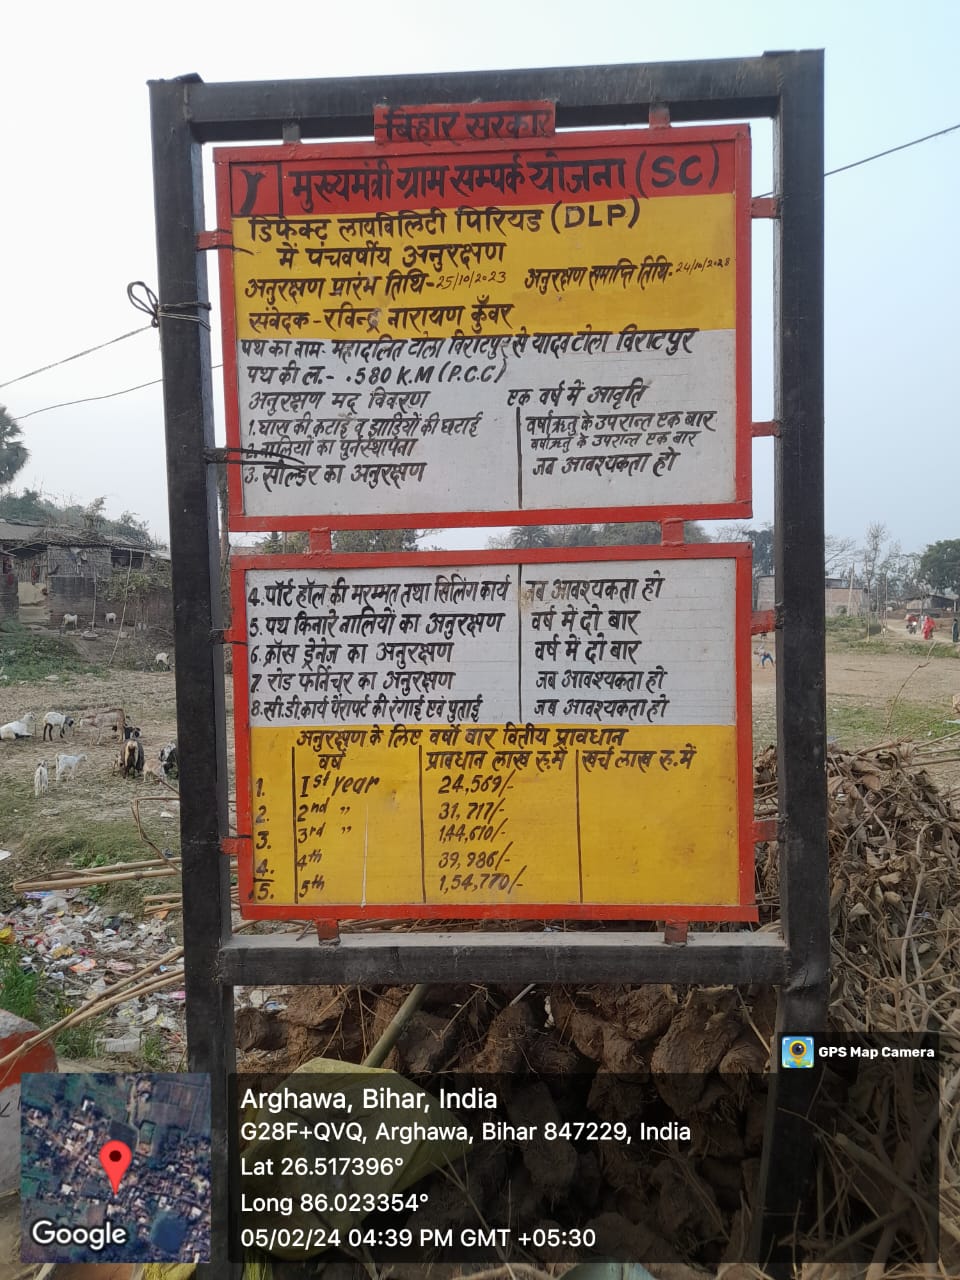 बिहार सरकार
मुख्यमंत्री ग्राम सम्पर्क योजना (SC)
डिफेक्ट लायविलिटी पिरियड (DLP)
में पंचवर्षीय अनुरक्षण
अनुरक्षण प्रारंभ तिथि-25/10/2023 अनुरक्षण समाप्ति तिथि-24/10/2028
संवेदक-रविन्द्र नारायण कुँवर
पथ का नाम- महादलित टोला विराटपुर से यादव टोला विराटपुर
पथ की ल.- .580 K.M (P.C.C)
अनुरक्षण मद विवरण एक वर्ष में आवृति
1. घास की कटाई व झाड़ियों की छटाई वर्षाऋतु के उपरान्त एक बार
2. नालियों का पुर्नस्थापना वर्षाऋतु के उपरान्त एक बार
3. सोल्डर का अनुरक्षण जब आवश्यकता हो
4. पॉर्ट हॉल की मरम्मत तथा सिलिंग कार्य जब आवश्यकता हो
5. पथ किनारे नालियों का अनुरक्षण वर्ष में दो बार
6. क्रॉस ड्रेनेज का अनुरक्षण वर्ष में दो बार
7. रोड फर्निचर का अनुरक्षण जब आवश्यकता हो
8. सी.डी.कार्य पैरापर्ट की रंगाई एवं पुताई जब आवश्यकता हो
अनुरक्षण के लिए वर्षो वार वितीय प्रावधान
वर्ष प्रावधान लाख रु.में खर्च लाख रु.में
1. Ist year 24,569/-
2. 2nd " 31,717/-
3. 3rd " 1,44,610/-
4. 4th 39,986/-
5. 5th 1,54,770/-
GPS Map Camera
Arghawa, Bihar, India
G28F+QVQ, Arghawa, Bihar 847229, India
Lat 26.517396°
Long 86.023354°
05/02/24 04:39 PM GMT +05:30
Google